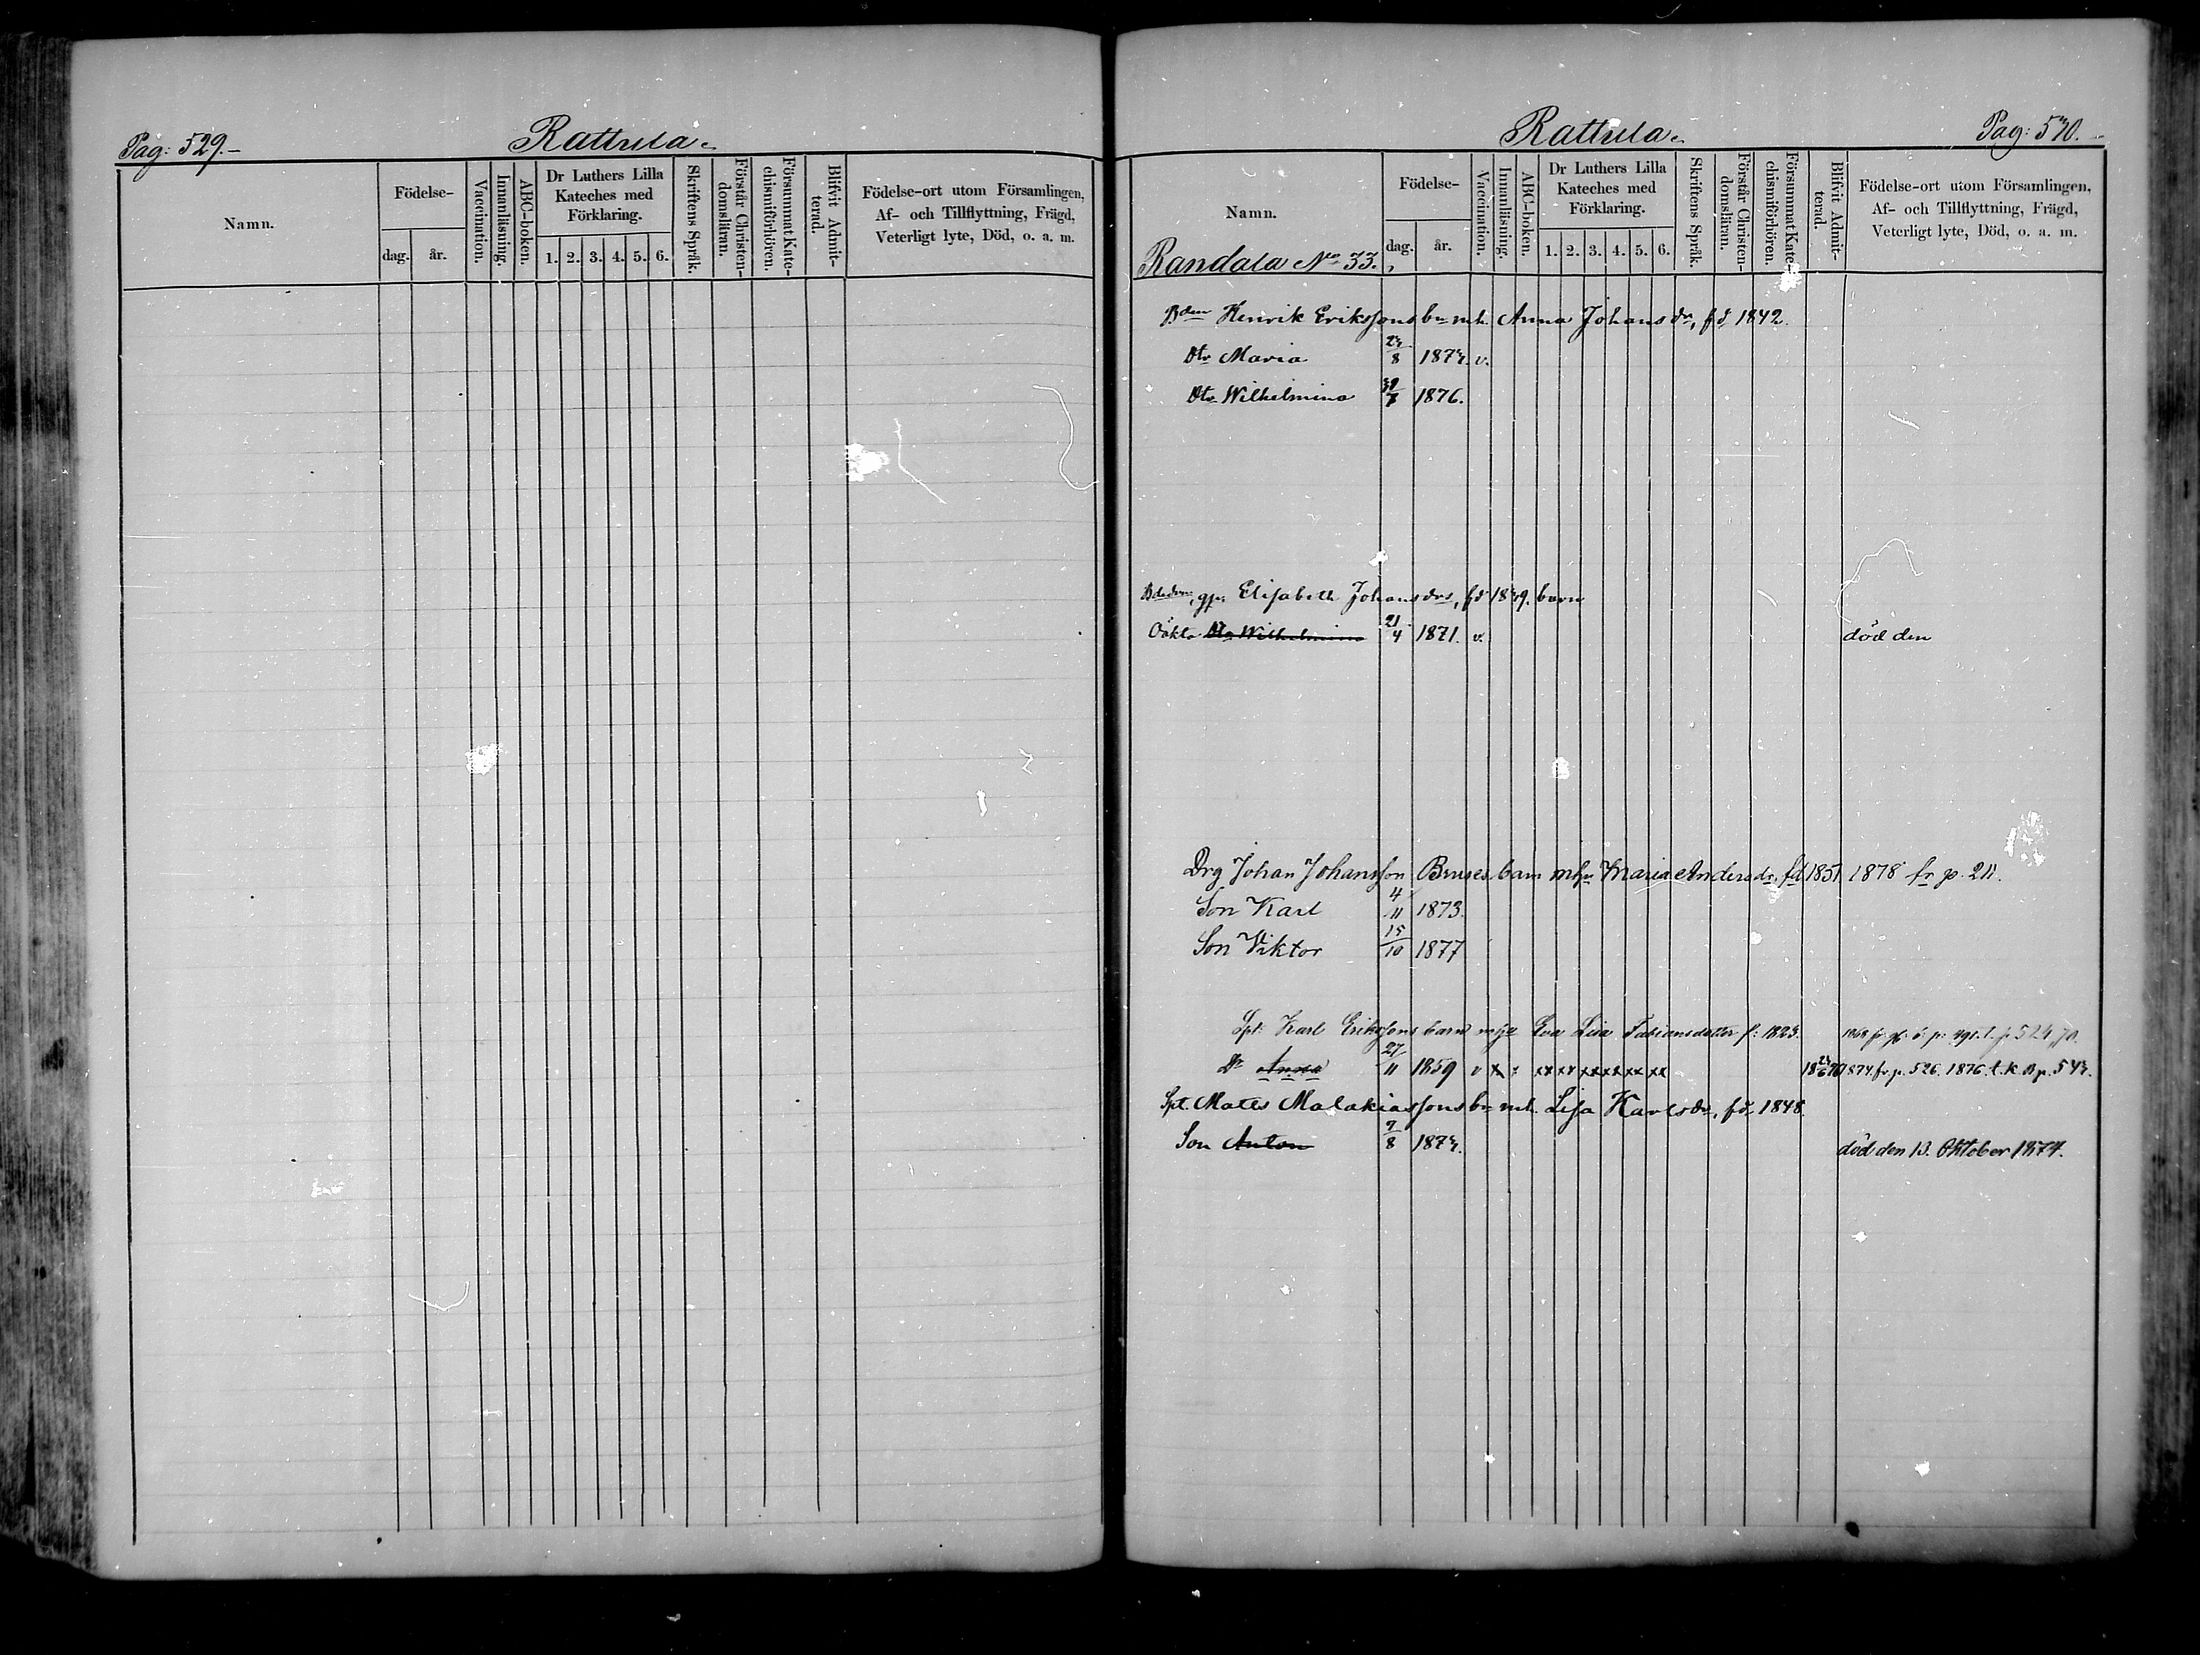 Pag: 529.-
Rattula.
Namn.
Födelse-
dag.
år.
Vaccination.
Innanläsning.
ABC-boken.
Dr Luthers Lilla
Kateches med
Förklaring.
1. 2. 3. 4. 5. 6.
Skriftens Språk.
Förstår Christen-
domsläran.
Försummat Kate-
chismiförhören.
Blifvit Admit-
terad.
Födelse-ort utom Församlingen,
Af- och Tillflyttning, Frägd,
Veterligt lyte, Död, o. a. m.
Rattula.
Pag: 530.
Namn.
Födelse-
dag.
år.
Vaccination.
Innanläsning.
ABC-boken.
Dr Luthers Lilla
Kateches med
Förklaring.
1. 2. 3. 4. 5. 6.
Skriftens Språk.
Förstår Christen-
domsläran.
Försummat Kate-
chismiförhören.
Blifvit Admit-
terad.
Födelse-ort utom Församlingen,
Af- och Tillflyttning, Frägd,
Veterligt lyte, Död, o. a. m.
Randala No 33.
Bden Henrik Erikssons bn mh. Anna Johansdr, fd 1842.
Dtr Maria 23/8 1873. v.
Dtr Wilhelmina 1876.
Elisabeth Johansdrs, fd 1839. barn
Oäkta Dtr Wilhelmina 21/4 1871. v. död den
Drg Johan Johansson Bruses barn mhu Maria Andersdr, fd 1851 1878 fr p. 211.
Son Karl 4/11 1873.
Son Viktor 15/10 1877
Spt. Karl Erikssons barn Eva Lisa Fabiansdotter f: 1823.
Dr Anna 27/11 1859 v x x xx xx xx xx xx xx 1874 fr. p. 526. 1876 t. K. B p. 543.
Spt. Matts Malakiassons bn mh. Lisa Karlsdr, fd 1848
Son Anton 9/8 1873. död den 13. Oktober 1874.